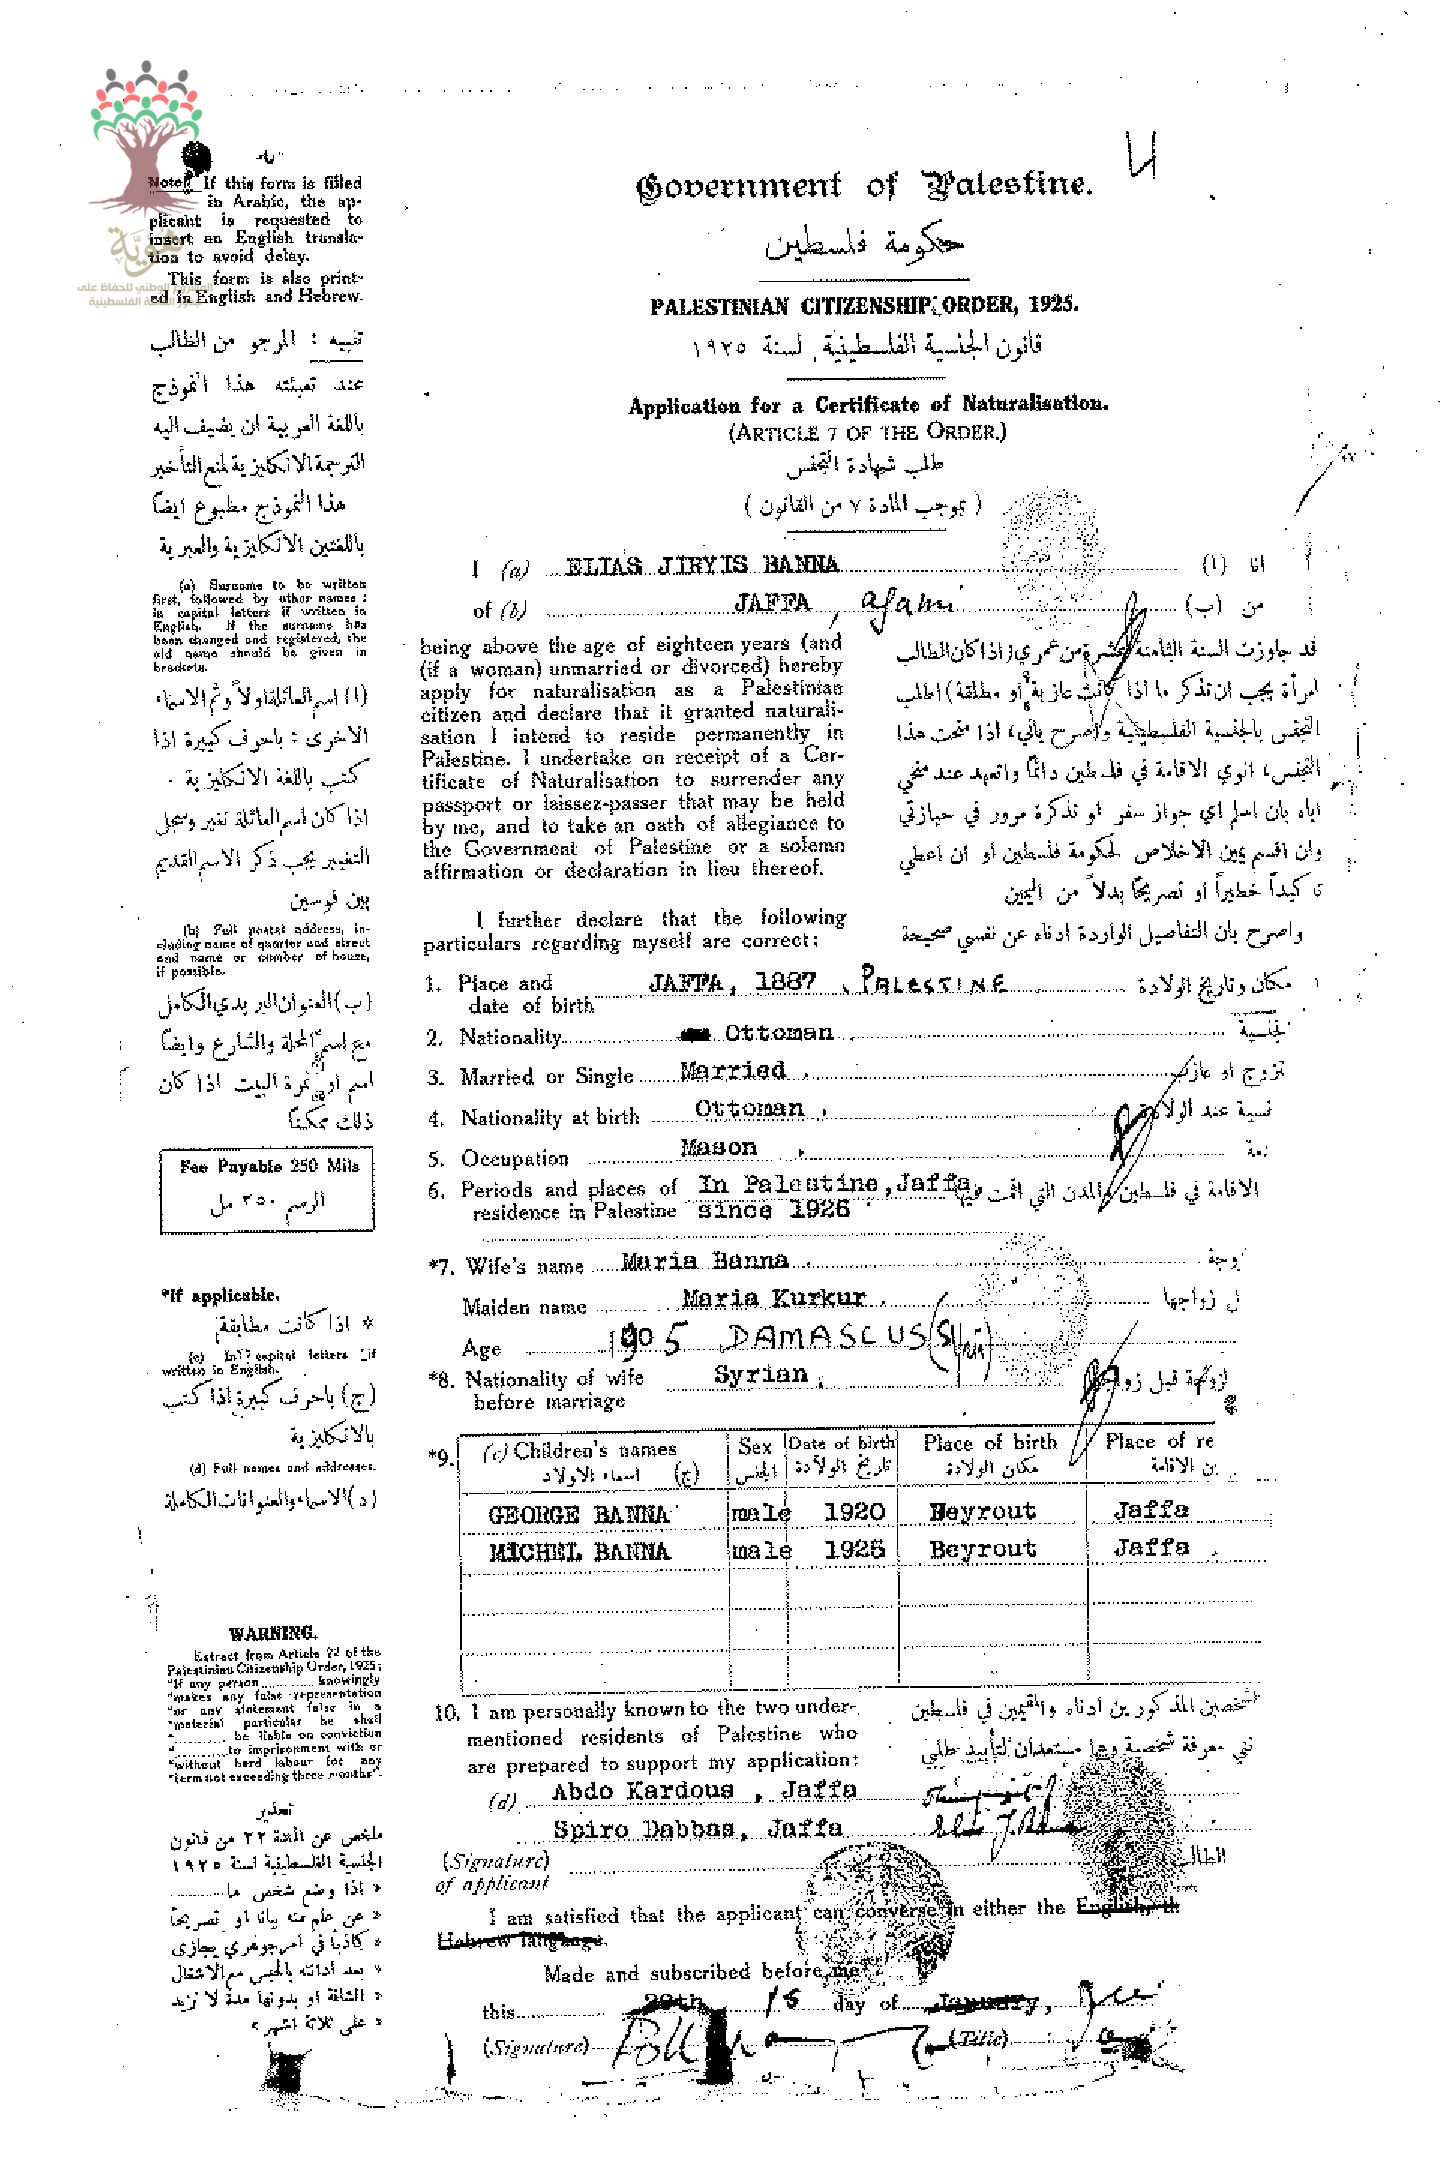 Note: If this form is filled
in Arabic, the ap-
plicant is requested to
insert an English transla-
tion to avoid delay.
This form is also print-
ed in English and Hebrew.
هوية
المشروع الوطني للحفاظ على
جذور العائلة الفلسطينية
تنبيه : المرجو من الطالب
عند تعبئته هذا النموذج
باللغة العربية ان يضيف اليه
الترجمة الانكليزية لمنع التأخير
هذا النموذج مطبوع ايضاً
باللغتين الانكليزية والعبرية
(a) Surname to be written
first, followed by other names ;
in capital letters if written in
English. If the surname has
been changed and registered, the
old name should be given in
brackets.
(ا) اسم العائلة اولاً وثم الاسماء
الاخرى : باحرف كبيرة اذا
كتب باللغة الانكليزية .
اذا كان اسم العائلة تغير وسجل
التغيير يجب ذكر الاسم القديم
بين قوسين
(b) Full postal address, in-
cluding name of quarter and street
and name or number of house,
if possible.
(ب) العنوان البريدي الكامل
مع اسم المحلة والشارع وايضاً
اسم او نمرة البيت اذا كان
ذلك ممكناً
Fee Payable 250 Mils
الرسم ٢٥٠ مل
*If applicable.
* اذا كانت مطابقة
(c) In capital letters if
written in English.
(ج) باحرف كبيرة اذا كتب
بالانكليزية
(d) Full names and addresses.
(د) الاسماء والعنوانات الكاملة
WARNING.
Extract from Article 22 of the
Palestinian Citizenship Order, 1925:
"If any person .......... knowingly
"makes any false representation
"or any statement false in a
"material particular he shall
" .......... be liable on conviction
" .......... to imprisonment with or
"without hard labour for any
"term not exceeding three months".
تحذير
ملخص عن المادة ٢٢ من قانون
الجنسية الفلسطينية لسنة ١٩٢٥
« اذا وضع شخص ما..........
« عن علم منه بيانا او تصريحاً
« كاذباً في امر جوهري يجازى
« بعد ادانته بالحبس مع الاشغال
« الشاقة او بدونها مدة لا تزيد
« على ثلاثة اشهر »
Government of Palestine.
حكومة فلسطين
PALESTINIAN CITIZENSHIP ORDER, 1925.
قانون الجنسية الفلسطينية لسنة ١٩٢٥
Application for a Certificate of Naturalisation.
(ARTICLE 7 OF THE ORDER.)
طلب شهادة التجنس
( بموجب المادة ٧ من القانون )
I (a) ELIAS JIRYIS BANNA (ا) انا
of (b) JAFFA, agami (ب) من
being above the age of eighteen years (and
(if a woman) unmarried or divorced) hereby
apply for naturalisation as a Palestinian
citizen and declare that if granted naturali-
sation I intend to reside permanently in
Palestine. I undertake on receipt of a Cer-
tificate of Naturalisation to surrender any
passport or laissez-passer that may be held
by me, and to take an oath of allegiance to
the Government of Palestine or a solemn
affirmation or declaration in lieu thereof.
I further declare that the following
particulars regarding myself are correct:
قد جاوزت السنة الثامنة عشرة من عمري (اذا كان الطالب
امرأة يجب ان تذكر ما اذا كانت عازبة او مطلقة) اطلب
التجنس بالجنسية الفلسطينية واصرح باني، اذا منحت هذا
التجنس، انوي الاقامة في فلسطين دائماً واتعهد عند منحي
اياه بان اسلم اي جواز سفر او تذكرة مرور في حيازتي
وان اقسم يمين الاخلاص لحكومة فلسطين او ان اعطي
كيداً خطيراً او تصريحاً بدلاً من اليمين
واصرح بان التفاصيل الواردة ادناه عن نفسي صحيحة
1. Place and
date of birth JAFFA, 1887 . PALESTINE مكان وتاريخ الولادة
2. Nationality Ottoman . لجنسية
3. Married or Single Married . تزوج او عازب
4. Nationality at birth Ottoman . نسية عند الولادة
5. Occupation Mason .
6. Periods and places of In Palestine, Jaffa, الاقامة في فلسطين والمدن التي اقمت فيها
residence in Palestine since 1926
*7. Wife's name Maria Banna . وجة
Maiden name Maria Kurkur . ل زواجها
Age 1905 DAMASCUS
*8. Nationality of wife Syrian . لزوجة قبل
before marriage
*9. (c) Children's names Sex Date of birth Place of birth Place of re
(ج) اسماء الاولاد الجنس تاريخ الولادة مكان الولادة ن الاقامة
GEORGE BANNA male 1920 Beyrout Jaffa
MICHEL BANNA male 1926 Beyrout Jaffa .
10. I am personally known to the two under-
mentioned residents of Palestine who
are prepared to support my application:
شخصين المذكورين ادناه والمقيمين في فلسطين
ني معرفة شخصية وهما مستعدان لتأييد طلبي
(d) Abdo Kardous , Jaffa
Spiro Dabbas, Jaffa
(Signature)
of applicant الطالب
I am satisfied that the applicant can converse in either the English, th
Hebrew language.
Made and subscribed before me
this 20th 18 day of January,
(Signature) (Title)